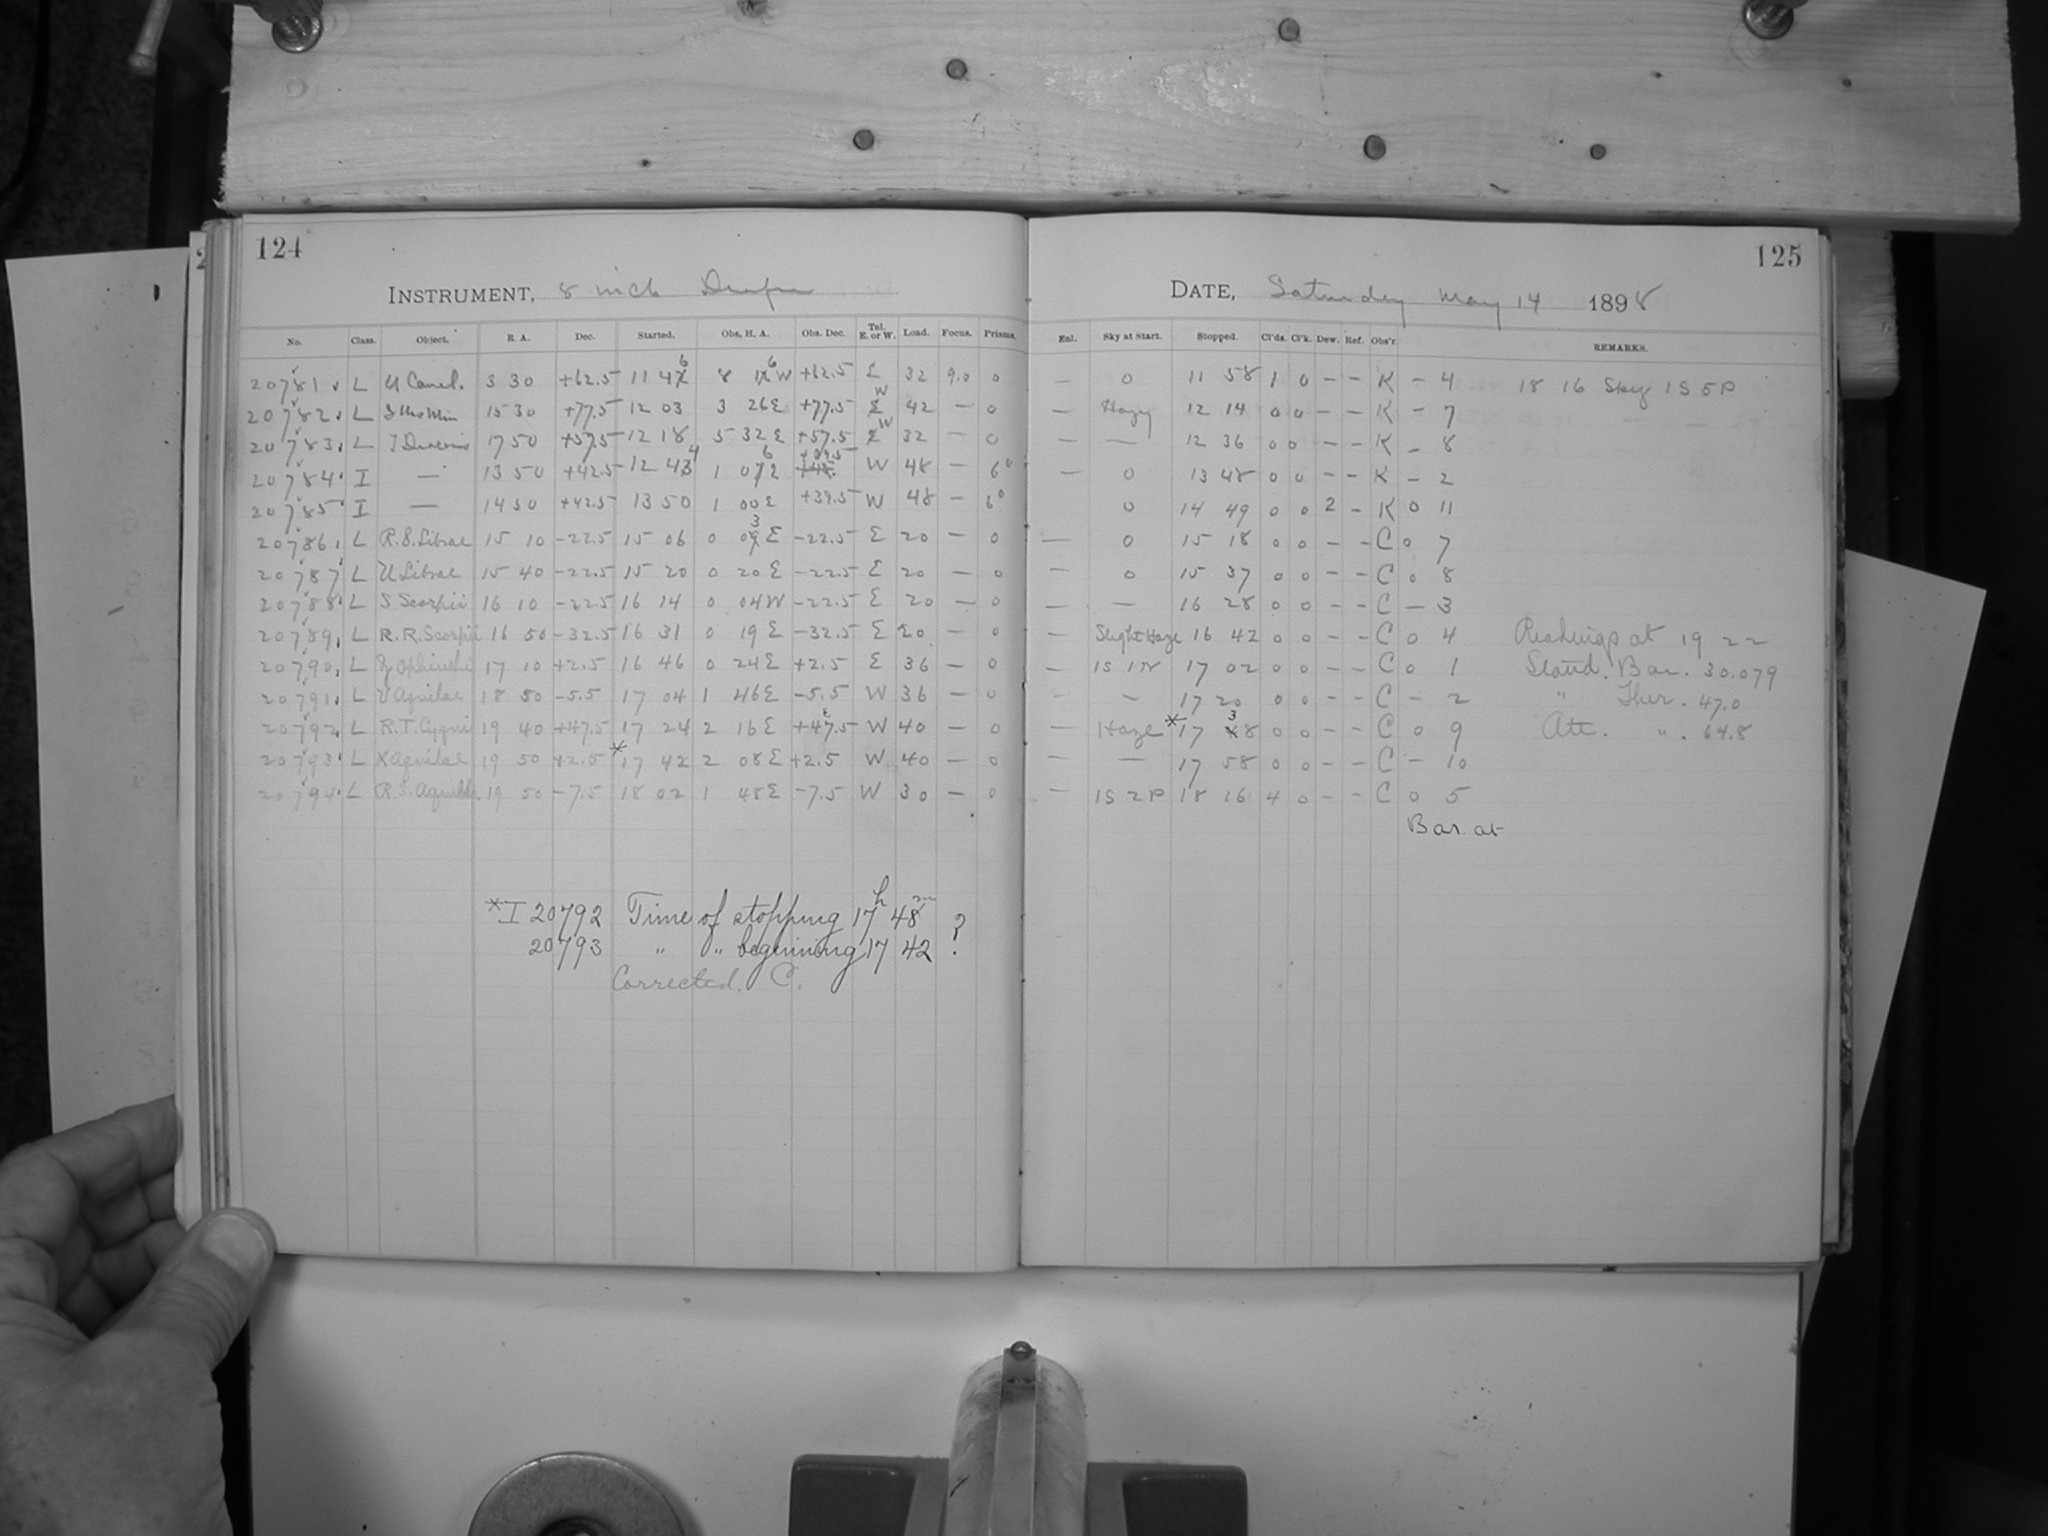 124
INSTRUMENT, 8 inch Draper
No. Class. Object. R. A. Dec. Started. Obs. H. A. Obs. Dec. Tel. E. or W. Load. Focus. Prisms.
20781. L U Camel. 3 30 +62.5 11 46 8 16 W +62.5 E 32 9.0 0
20782. L S Urs Min 15 30 +77.5 12 03 3 26 E +77.5 W 42 — 0
20783. L T Draconis 17 50 +57.5 12 18 5 32 E +57.5 W 32 — 0
20784. I — 13 50 +42.5 12 44 1 06 E W 48 — 6°
20785. I — 14 50 +42.5 13 50 1 00 E +39.5 W 48 — 6°
20786. L R.S. Librae 15 10 -22.5 15 06 0 03 E -22.5 E 20 — 0
20787. L U Librae 15 40 -22.5 15 20 0 20 E -22.5 E 20 — 0
20788. L S Scorpii 16 10 -22.5 16 14 0 04 W -22.5 E 20 — 0
20789. L R.R. Scorpii 16 50 -32.5 16 31 0 19 E -32.5 E 20 — 0
20790. L Ophiuchi 17 10 +2.5 16 46 0 24 E +2.5 E 36 — 0
20791. L V Aquilae 18 50 -5.5 17 04 1 46 E -5.5 W 36 — 0
20792. L R.T. Cygni 19 40 +47.5 17 24 2 16 E +47.5 W 40 — 0
20793. L X Aquilae 19 50 +2.5 *17 42 2 08 E +2.5 W 40 — 0
20794. L R.S. Aquilae 19 50 -7.5 18 02 1 48 E -7.5 W 30 — 0
*I 20792 Time of stopping 17h 48m ?
20793 " " beginning 17 42 ?
Corrected. C.
125
DATE, Saturday May 14 1898
Enl. Sky at Start. Stopped. Cl'ds. Cl'k. Dew. Ref. Obs'r. REMARKS.
— 0 11 58 1 0 — — K — 4 18 16 Sky 1S 5P
— Hazy 12 14 0 0 — — K — 7
— — 12 36 0 0 — — K — 8
— 0 13 48 0 0 — — K — 2
0 14 49 0 0 2 — K 0 11
— 0 15 18 0 0 — — C 0 7
0 15 37 0 0 — — C 0 8
— — 16 28 0 0 — — C — 3
— Slight Haze 16 42 0 0 — — C 0 4 Readings at 19 22
— 1S 1N 17 02 0 0 — — C 0 1 Stand. Bar. 30.079
— — 17 20 0 0 — — C — 2 " Ther. 47.0
— Haze *17 38 0 0 — — C 0 9 Att. " . 64.8
— — 17 58 0 0 — — C — 10
— 1S 2P 18 16 4 0 — — C 0 5
Bar. at